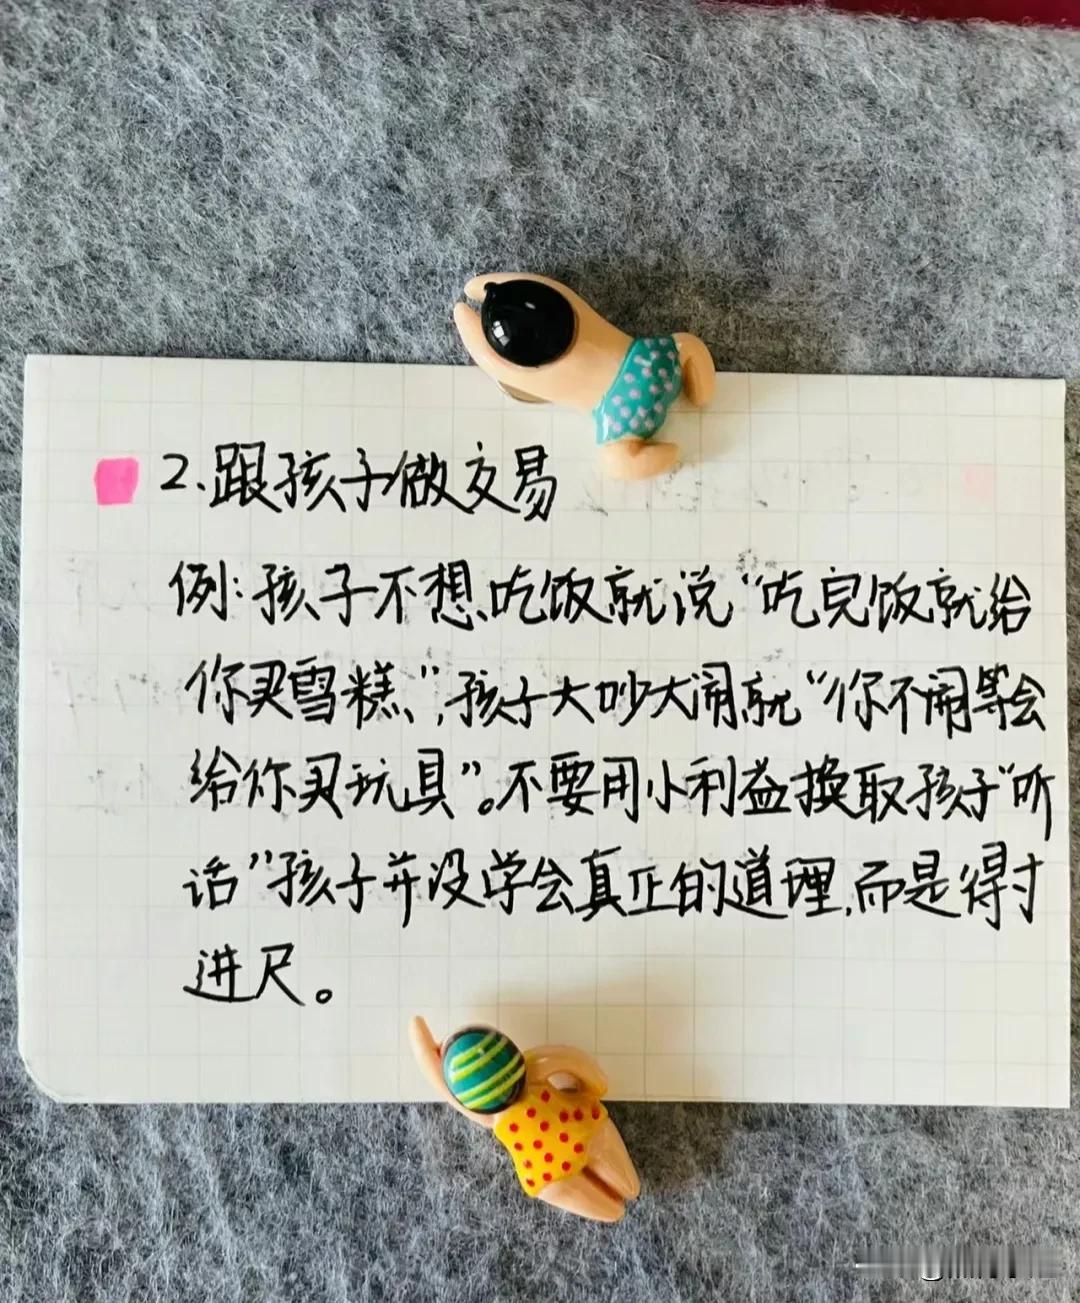 2.跟孩子做交易
例:孩子不想吃饭就说“吃完饭就给
你买雪糕”,孩子大吵大闹就“你不闹等会
给你买玩具”。不要用小利益换取孩子“听
话”孩子并没学会真正的道理,而是得寸
进尺。